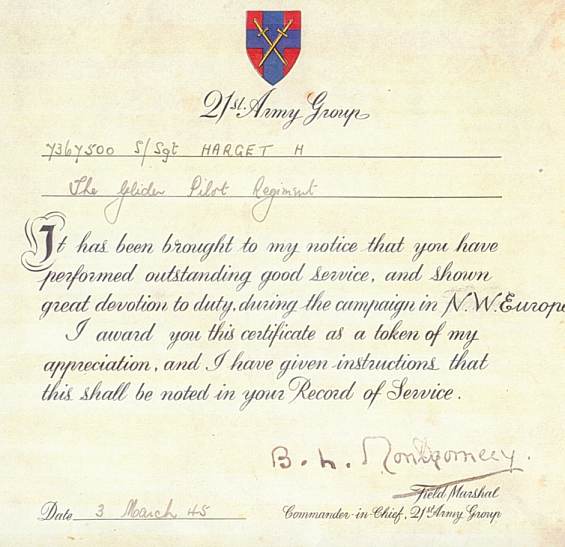 21st. Army Group
7367500 S/Sgt HARGET H
The Glider Pilot Regiment
It has been brought to my notice that you have
performed outstanding good service, and shown
great devotion to duty, during the campaign in N.W.Europe
I award you this certificate as a token of my
appreciation, and I have given instructions that
this shall be noted in your Record of Service.
B. L. Montgomery.
Field Marshal
Date 3 March 45 Commander-in-Chief, 21st Army Group